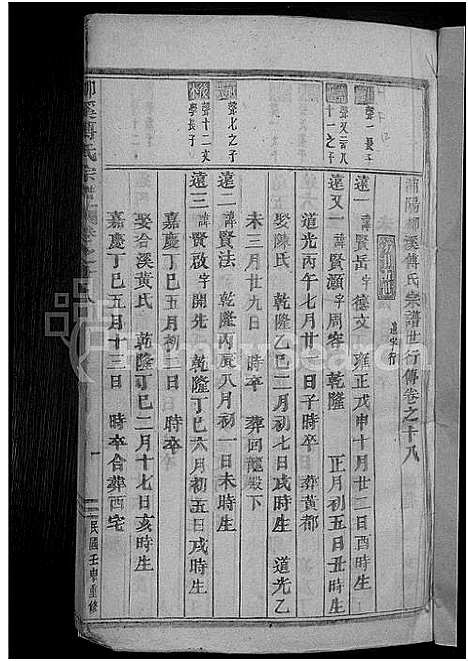 浦陽柳溪傅氏宗譜世行傳卷之十八
遠字行
聲一長子
遠一 諱賢岳字德文 雍正戊申十月廿二日酉時生
聲又三八
十一之子
遠又一 諱賢灝字周寄 乾隆 正月初五日丑時生
道光丙午七月廿一日子時卒 葬黃都
娶陳氏 乾隆乙巳二月初七日戌時生 道光乙
未三月廿九日 時卒 葬回龍殿下
聲七之子
遠二 諱賢法 乾隆丙辰八月初一日未時生
聲十二文
學長子
遠三 諱賢啟字開先 乾隆丁巳六月初五日戌時生
嘉慶丁巳五月初二日 時卒
娶合溪黃氏 乾隆丁巳二月十七日亥時生
嘉慶丁巳五月十三日 時卒合葬西宅
柳溪傅氏宗譜
卷之十八
一
民國壬申重修